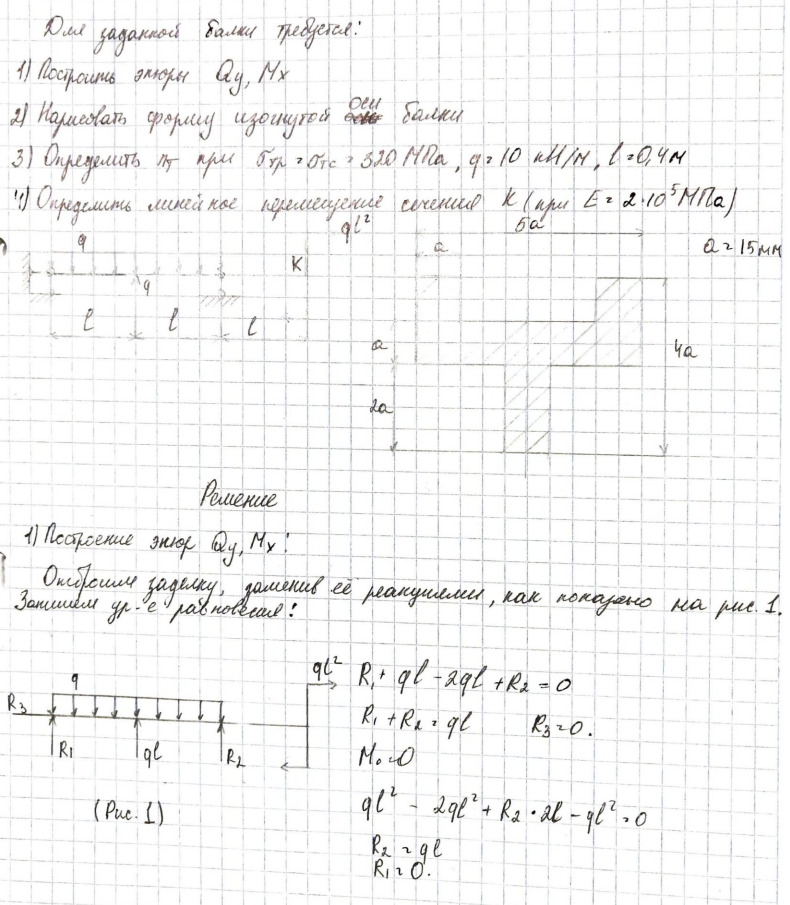 Для заданной балки требуется:
1) Построить эпюры Qy, Mx
2) Нарисовать форму изогнутой оси балки
3) Определить nт при σтр = σтс = 320 МПа, q = 10 кН/м, l = 0,4м
4) Определить линейное перемещение сечения K (при E = 2·10⁵ МПа)
q
q
K
ql²
l
l
l
5a
a
a = 15мм
a
2a
4a
Решение
1) Построение эпюр Qy, Mx:
Отбросим заделку, заменив её реакциями, как показано на рис. 1.
Запишем ур-е равновесия:
q
R3
R1
ql
R2
ql²
(Рис. 1)
R1 + ql - 2ql + R2 = 0
R1 + R2 = ql R3 = 0.
M0 = 0
ql² - 2ql² + R2 · 2l - ql² = 0
R2 = ql
R1 = 0.